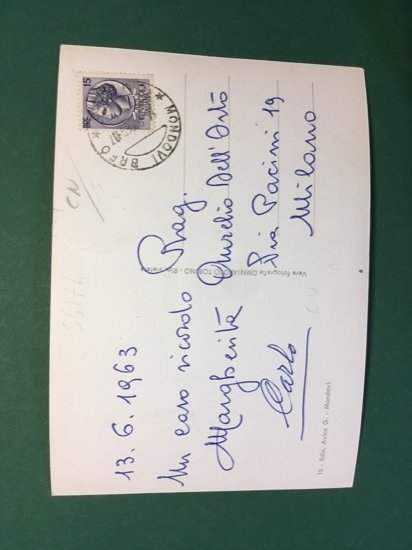 13.6.1963
Un caro ricordo
Margherita
Carlo
MONDOVI BREO
L. 15
Rag.
Aurelio Dell'Orto
Via Pacini 19
Milano
Vera fotografia OMNIAFOTO TORINO - Rip. vietata
10 - Ediz. Avico G. - Mondovì
CN